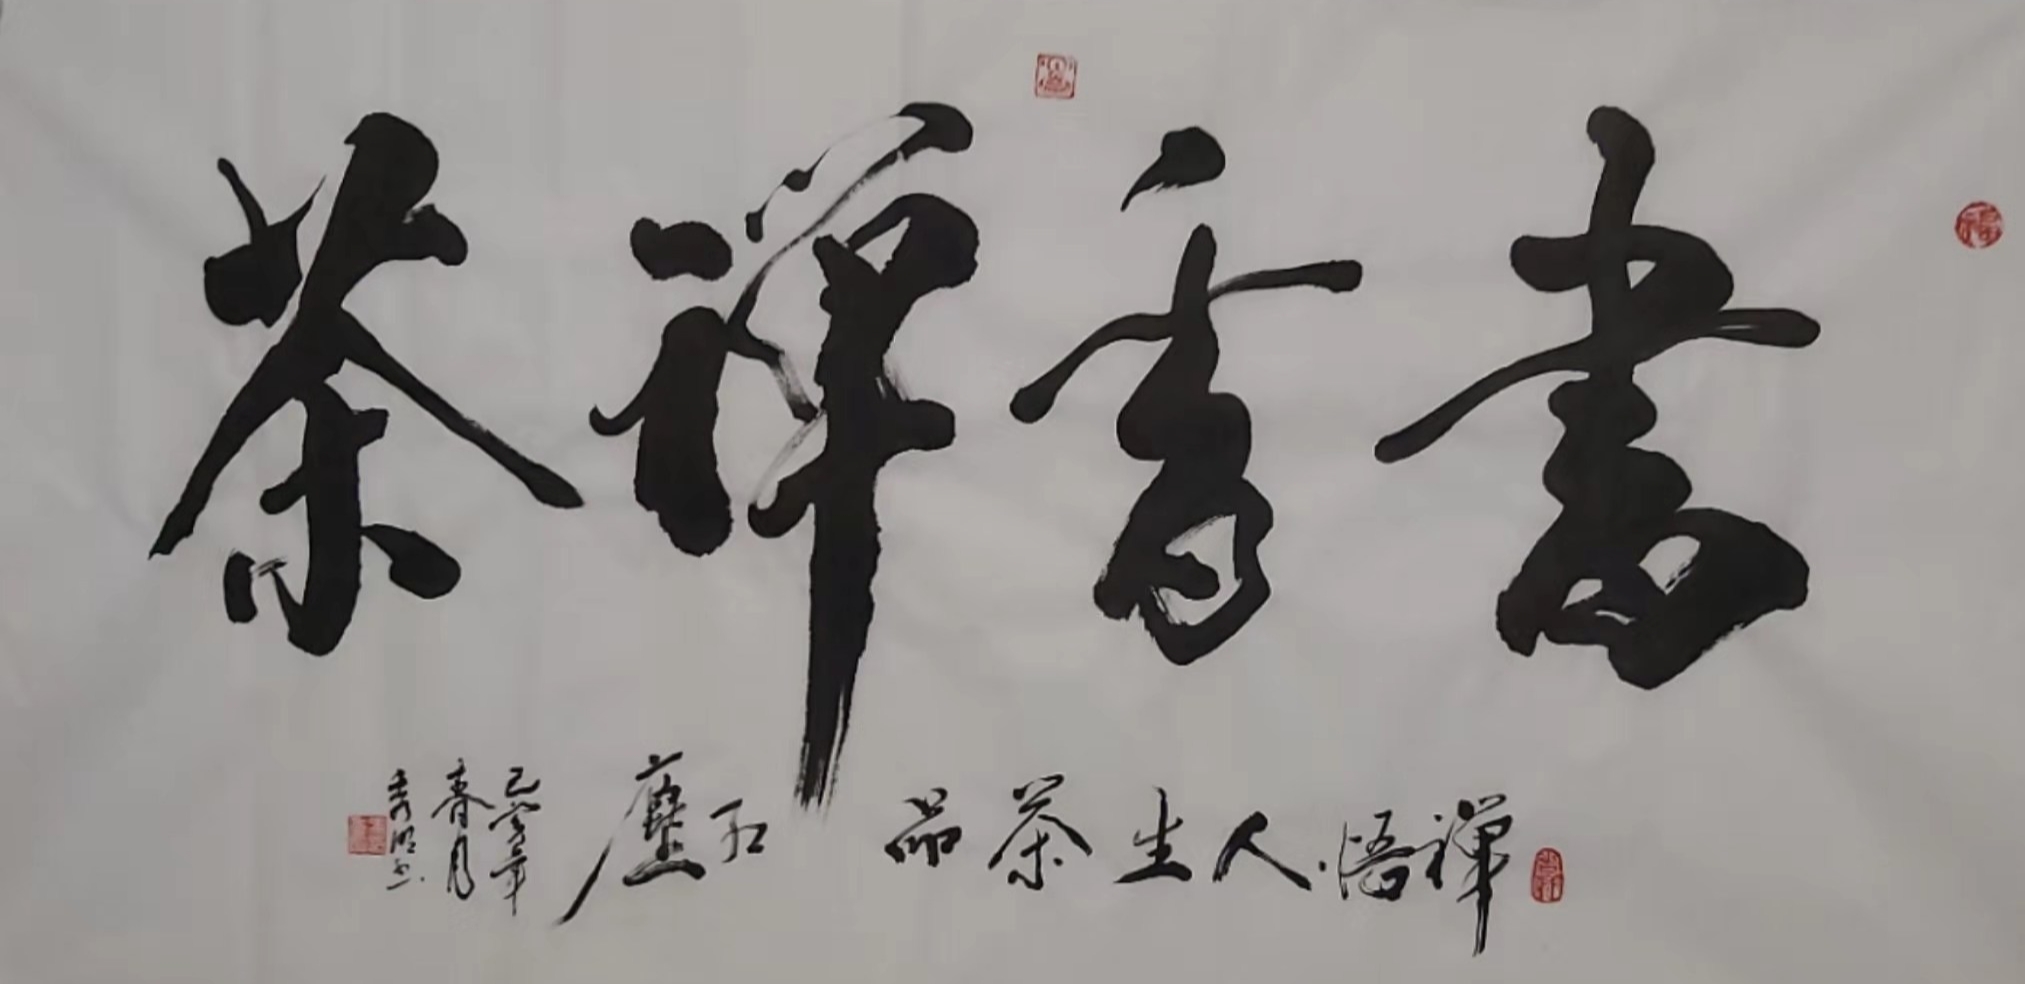 書香禪茶
禪悟人生茶品紅塵
己亥年
春月